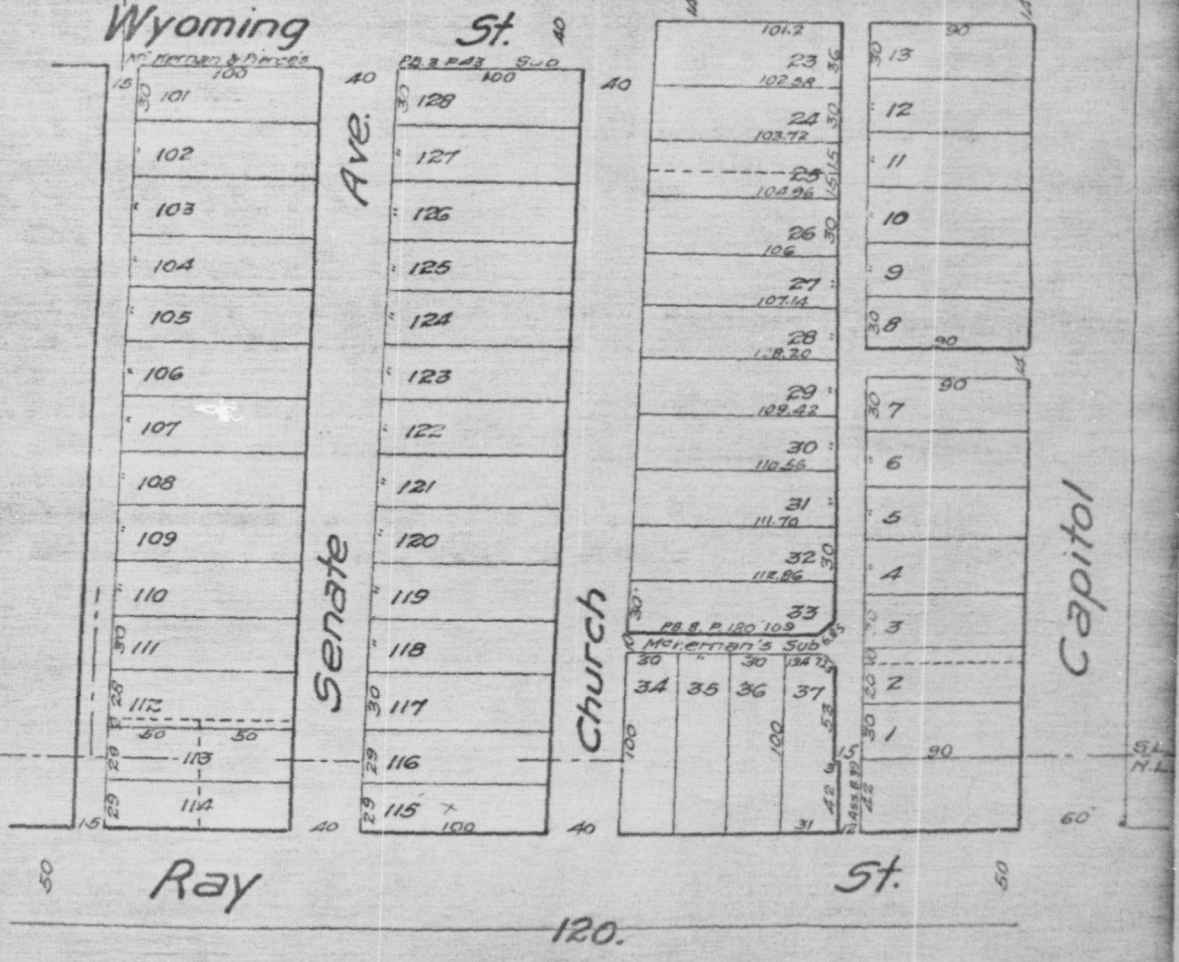 Wyoming St. 40
McKernan & Pierce's
P.B. 3 P. 43 Sub
15 100 40 100 40
30 101
102
103
104
105
106
107
108
109
110
30 111
28 112
2 50 50
29 113
29 114
15 40
Senate Ave.
30 128
127
126
125
124
123
122
121
120
119
118
30 117
29 116
29 115 x
100 40
Church
14
101.2
23 36
102.58
24 30
103.72
25 15 15
104.96
26 30
106
27
107.14
28
108.20
29
109.42
30
110.56
31
111.70
32 30
112.86
30 33
P.B. 8. P. 180 109 6.85
10 McKernan's Sub
30 " 30
34 35 36 37
100 100 53
31 42
12
15
Ass. B 39
14
90
30 13
12
11
10
9
30 8
90
14
90
30 7
6
5
4
30 3
10
20 2
30 1
90
42
Capitol
S.L.
N.L.
60
50 Ray St. 50
120.